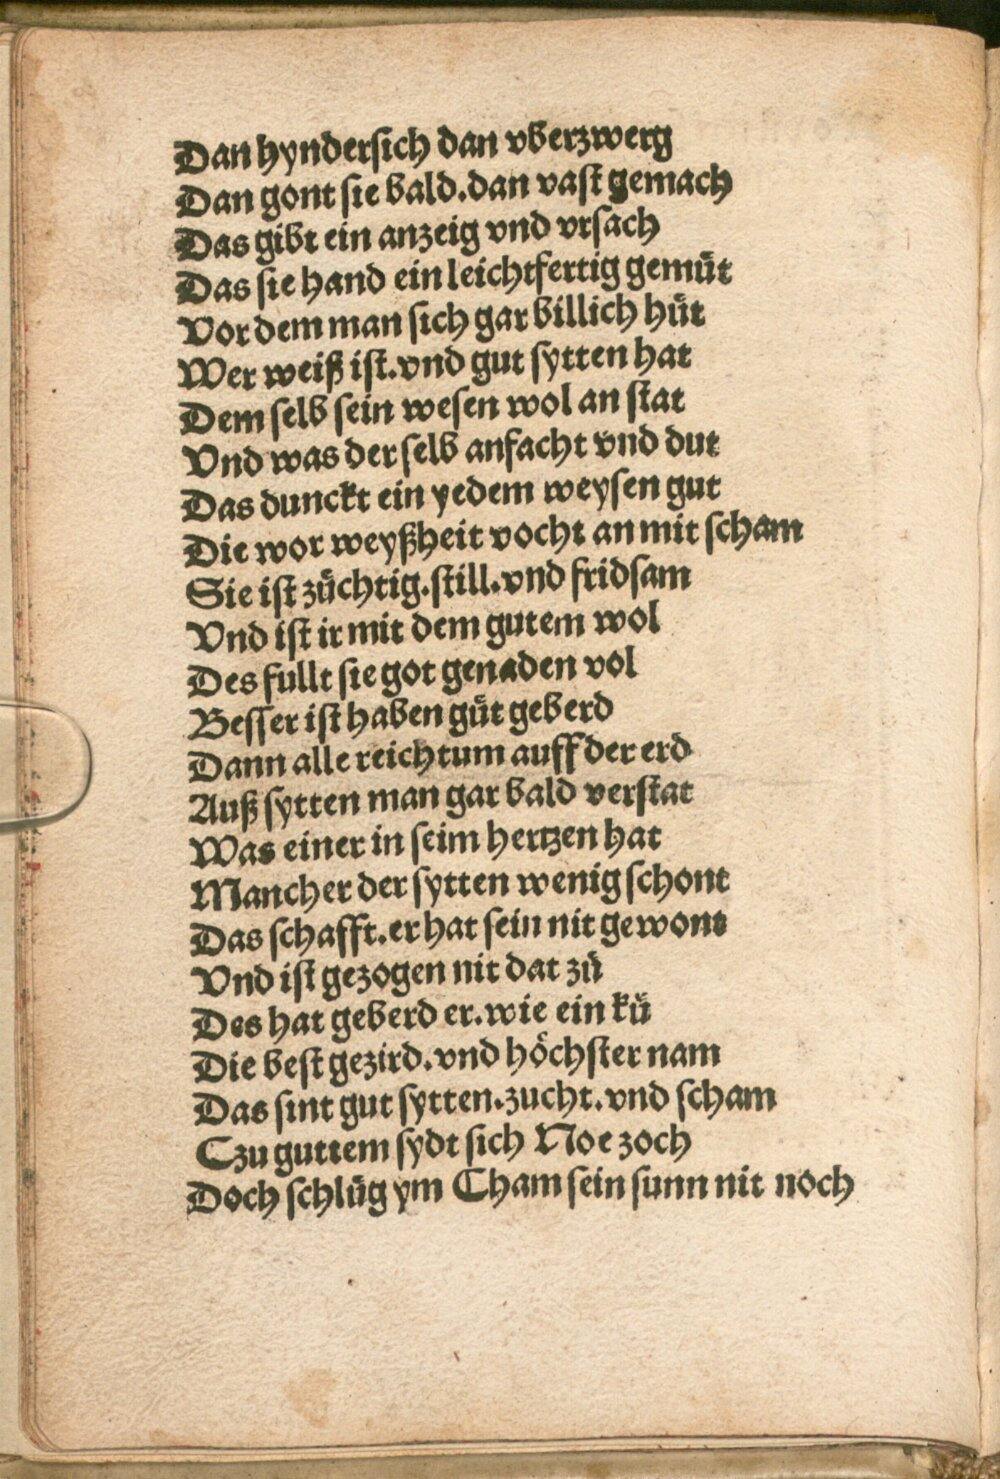 Dan hyndersich dan vberzwerg
Dan gont sie bald.dan vast gemach
Das gibt ein anzeig vnd vrsach
Das sie hand ein leichtfertig gemuͤt
Vor dem man sich gar billich huͤt
Wer weiß ist.vnd gut sytten hat
Dem selb sein wesen wol an stat
Vnd was der selb anfacht vnd dut
Das dunckt ein yedem weysen gut
Die wor weyßheit vocht an mit scham
Sie ist zuͤchtig.still.vnd fridsam
Vnd ist ir mit dem gutem wol
Des fullt sie got genaden vol
Besser ist haben guͤt geberd
Dann alle reichtum auff der erd
Auß sytten man gar bald verstat
Was einer in seim hertzen hat
Mancher der sytten wenig schont
Das schafft.er hat sein nit gewont
Vnd ist gezogen nit dat zuͤ
Des hat geberd er.wie ein kuͤ
Die best gezird.vnd hoͤchster nam
Das sint gut sytten.zucht.vnd scham
Czu guttem sydt sich Noe zoch
Doch schluͤg ym Cham sein sunn nit noch